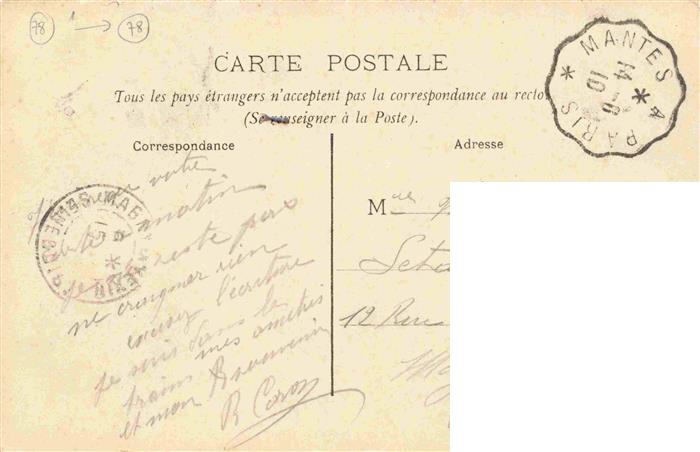 78 1 → 78
CARTE POSTALE
Tous les pays étrangers n'acceptent pas la correspondance au recto
(Se renseigner à la Poste).
Correspondance
Adresse
MANTES A PARIS
14 -6
10
J'ai reçu votre
carte ce matin
je ne reste pas
ne craignez rien
excusez l'écriture
je suis dans le
train mes amitiés
et mon souvenir
R Caron
MAGN
SEINE ET O
15
6
Melle
12 Rue